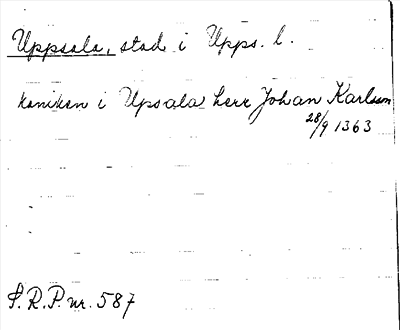 Uppsala, stad i Upps. l.
kaniken i Upsala herr Johan Karlsson
28/9 1363
S.R.P. nr. 587